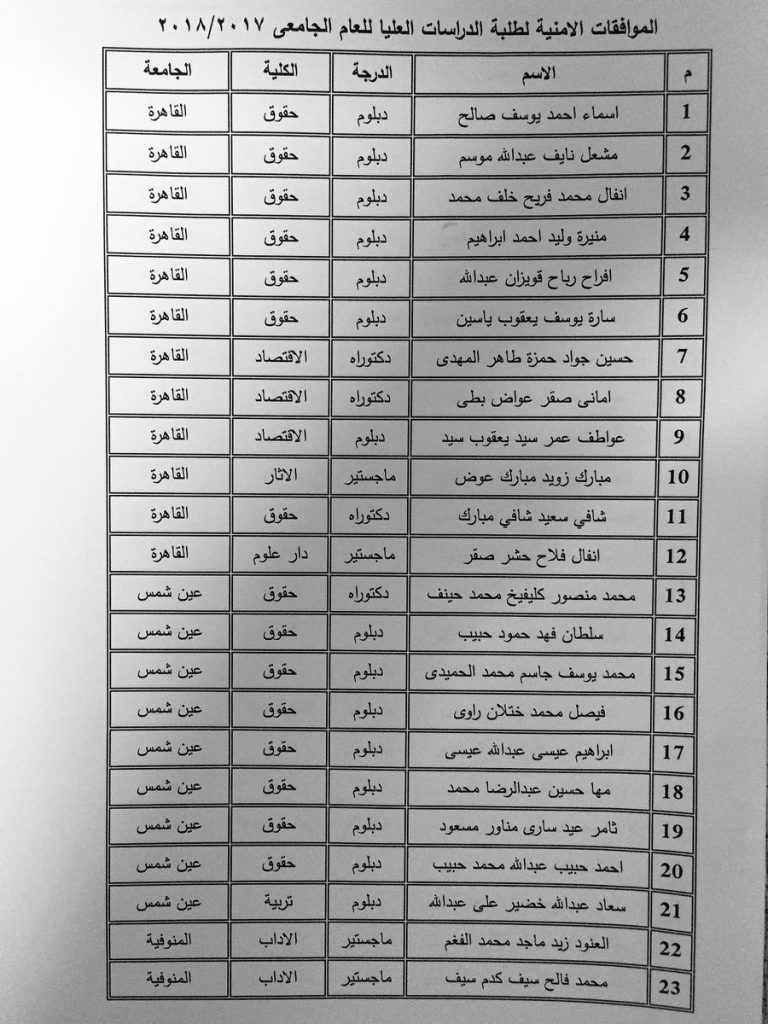 الموافقات الامنية لطلبة الدراسات العليا للعام الجامعى ٢٠١٨/٢٠١٧
م الاسم الدرجة الكلية الجامعة
1 اسماء احمد يوسف صالح دبلوم حقوق القاهرة
2 مشعل نايف عبدالله موسم دبلوم حقوق القاهرة
3 انفال محمد فريح خلف محمد دبلوم حقوق القاهرة
4 منيرة وليد احمد ابراهيم دبلوم حقوق القاهرة
5 افراح رباح قويزان عبدالله دبلوم حقوق القاهرة
6 سارة يوسف يعقوب ياسين دبلوم حقوق القاهرة
7 حسين جواد حمزة طاهر المهدى دكتوراه الاقتصاد القاهرة
8 امانى صقر عواض بطى دكتوراه الاقتصاد القاهرة
9 عواطف عمر سيد يعقوب سيد دبلوم الاقتصاد القاهرة
10 مبارك زويد مبارك عوض ماجستير الاثار القاهرة
11 شافي سعيد شافي مبارك دكتوراه حقوق القاهرة
12 انفال فلاح حشر صقر ماجستير دار علوم القاهرة
13 محمد منصور كليفيخ محمد حينف دكتوراه حقوق عين شمس
14 سلطان فهد حمود حبيب دبلوم حقوق عين شمس
15 محمد يوسف جاسم محمد الحميدى دبلوم حقوق عين شمس
16 فيصل محمد ختلان راوى دبلوم حقوق عين شمس
17 ابراهيم عيسى عبدالله عيسى دبلوم حقوق عين شمس
18 مها حسين عبدالرضا محمد دبلوم حقوق عين شمس
19 ثامر عيد سارى مناور مسعود دبلوم حقوق عين شمس
20 احمد حبيب عبدالله محمد حبيب دبلوم حقوق عين شمس
21 سعاد عبدالله خضير على عبدالله دبلوم تربية عين شمس
22 العنود زيد ماجد محمد الفغم ماجستير الاداب المنوفية
23 محمد فالح سيف كدم سيف ماجستير الاداب المنوفية